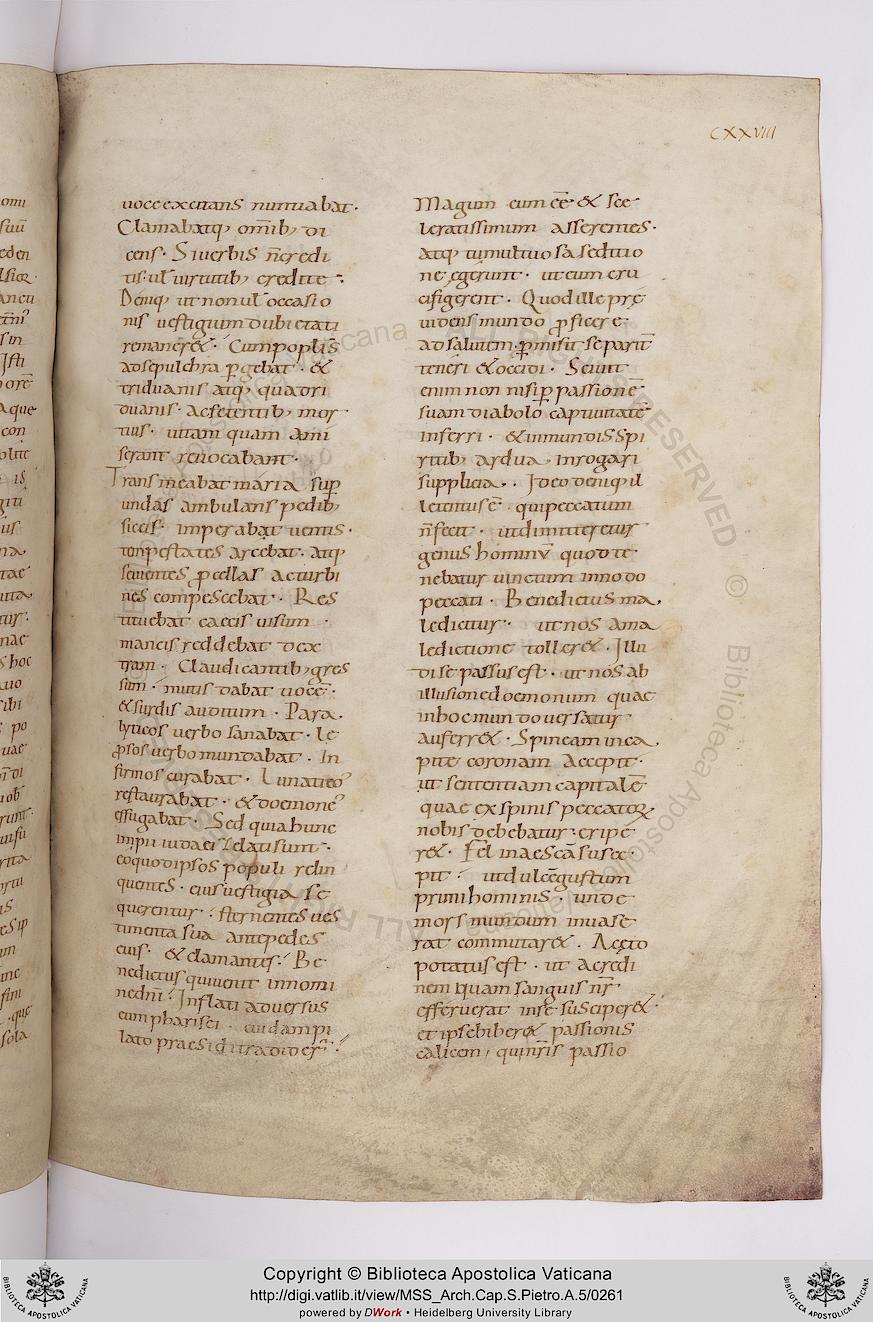 CXXVIII
uoce excitans nuntiabat.
Clamabatq; omib; di
cens. Si uerbis n̄ credi
tis. ul̄ uirtutib; credite.
Deniq; ut non ul̄ occasio
nis uestigium dubietati
remaner&. Cum popl̄is
ad sepulchra ꝑgebat. &
triduanis atq; quadri
duanis. ac fetentib; mor
tuis. uitam quam ami
serant reuocabant.
Transmeabat maria sup̄
undas ambulans pedib;
siccis. imperabat uentis.
tempestates arcebat. atq;
seuientes ꝓcellas ac turbi
nes compescebat. Res
tituebat caecis uisum.
mancis reddebat dex
tram. Claudicantib; gres
sum. mutis dabat uocē.
& surdis auditum. Para
lyticos uerbo sanabat. Le
ꝓsos uerbo mundabat. In
firmos curabat. Lunaticos
restaurabat. & doemones
effugabat. Sed quia hunc
impii iudaei zelati sunt.
eo quod ipsos populi relin
quentes. eius uestigia se
querentur. sternentes ues
timenta sua ante pedes
eius. & clamantes. Be
nedictus qui uenit in nomi
ne dn̄i. Inflati aduersus
eum pharisei. cuidam pi
lato praesidi tradider̄.
Magum eum eē & sce
leratissimum asserentes.
atq; tumultuosa seditio
ne egerunt. ut eum cru
cifigerent. Quod ille pre
uidens mundo ꝓficere
ad salutem. ꝑmisit se parit̄
teneri & occidi. Sciuit
enim non nisi ꝑ passionē
suam diabolo captiuitatē
inferri. & inmundis spi
ritib; ardua inrogari
supplicia. Ideo deniq; il
le tentus ē. qui peccatum
n̄ fecit. ut dimitteretur
genus hominū quod te
nebatur uinctum in nodo
peccati. Benedictus ma
ledicitur. ut nos a ma
ledictione toller&. Illu
di se passus est. ut nos ab
illusione doemonum quae
in hoc mundo uersatur
auferr&. Spineam in ca
pite coronam accepit.
ut sententiam capitalē
quae ex spinis peccatoꝝ
nobis debebatur. eripe
r&. Fel in aescā susce
pit. ut dulcē gustum
primi hominis. unde
mors mundum inuase
rat commutar&. Aceto
potatus est. ut acredi
nem quam sanguis nr̄
efferuerat in se susciper&.
et ipse biber& passionis
calicem, qui nr̄is passio
Copyright © Biblioteca Apostolica Vaticana
http://digi.vatlib.it/view/MSS_Arch.Cap.S.Pietro.A.5/0261
powered by DWork • Heidelberg University Library